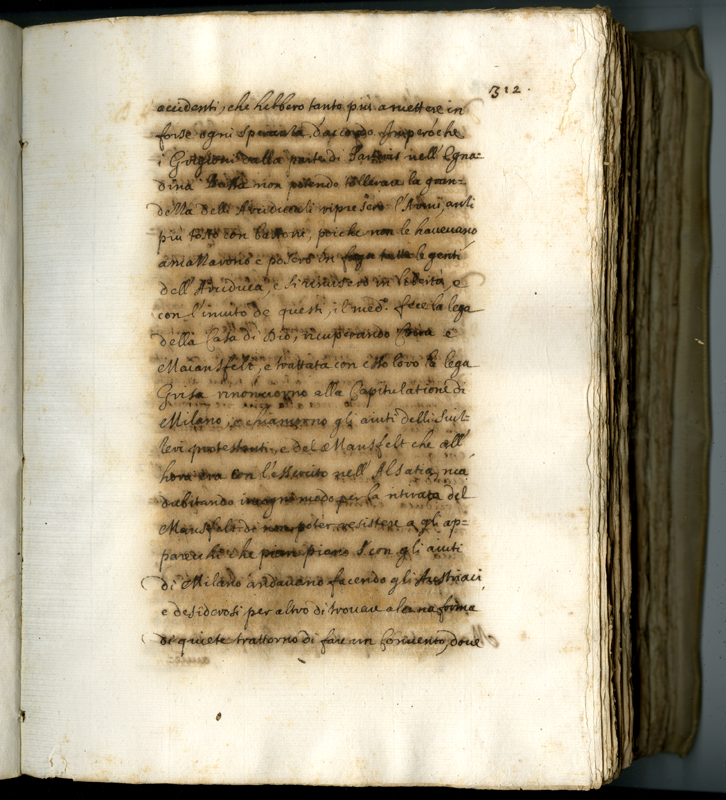 312.
accidenti, che hebbero tanto più a mettere in
forse ogni speranza d'accordo. Imperòche
i Grigioni dalla parte di nell' Egna=
dina Bassa non potendo tollerare la gran=
delli Arciducali ripresero l'Armi, anzi
più tosto con bastoni, poiche non le havevano
amazzarono e posero in fuga tutte le genti
dell' Arciduca, e si rimisero in libertà, e
con l'invito de questi, il med.º fece la lega
della Casa di Dio, ricuperando Coira e
Maiansfelt, e trattata con esso loro la lega
Grisa rinonciorno alla Capitulatione di
Milano, e gli aiuti delli Suiz=
zeri protestanti, e del Mansfelt che all'
hora era con l'essercito nell' Alsatia, mà
dubitando in ogni modo per la ritirata del
Mansfelt di non poter resistere a gli ap=
parecchi che pian piano con gli aiuti
di Milano andavano facendo gli Austriaci,
e desiderosi per altro di trovare alcuna forma
di quiete trattorno di fare un Convento, dove